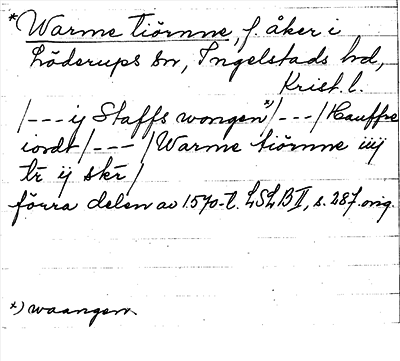 *Warme tiörnne, f. åker i
Löderups sn, Ingelstads hd,
Krist. l.
/--- ij Staffs wongen*)/---/Hauffre
iordt/---/Warme tiörnne iiij
tr ij skr/
förra delen av 1570-t. LSLB II, s. 287. orig.
*) waangen